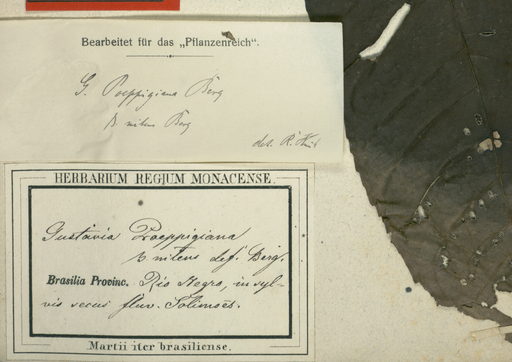 Bearbeitet für das „Pflanzenreich“.
G. Poeppigiana Berg
β nitens Berg
det. R.
HERBARIUM REGIUM MONACENSE.
Gustavia Poeppigiana
β nitens def. Berg.
Brasilia Provinc. Rio Negro, in syl-
vis secus fluv. Solimoës.
Martii iter brasiliense.